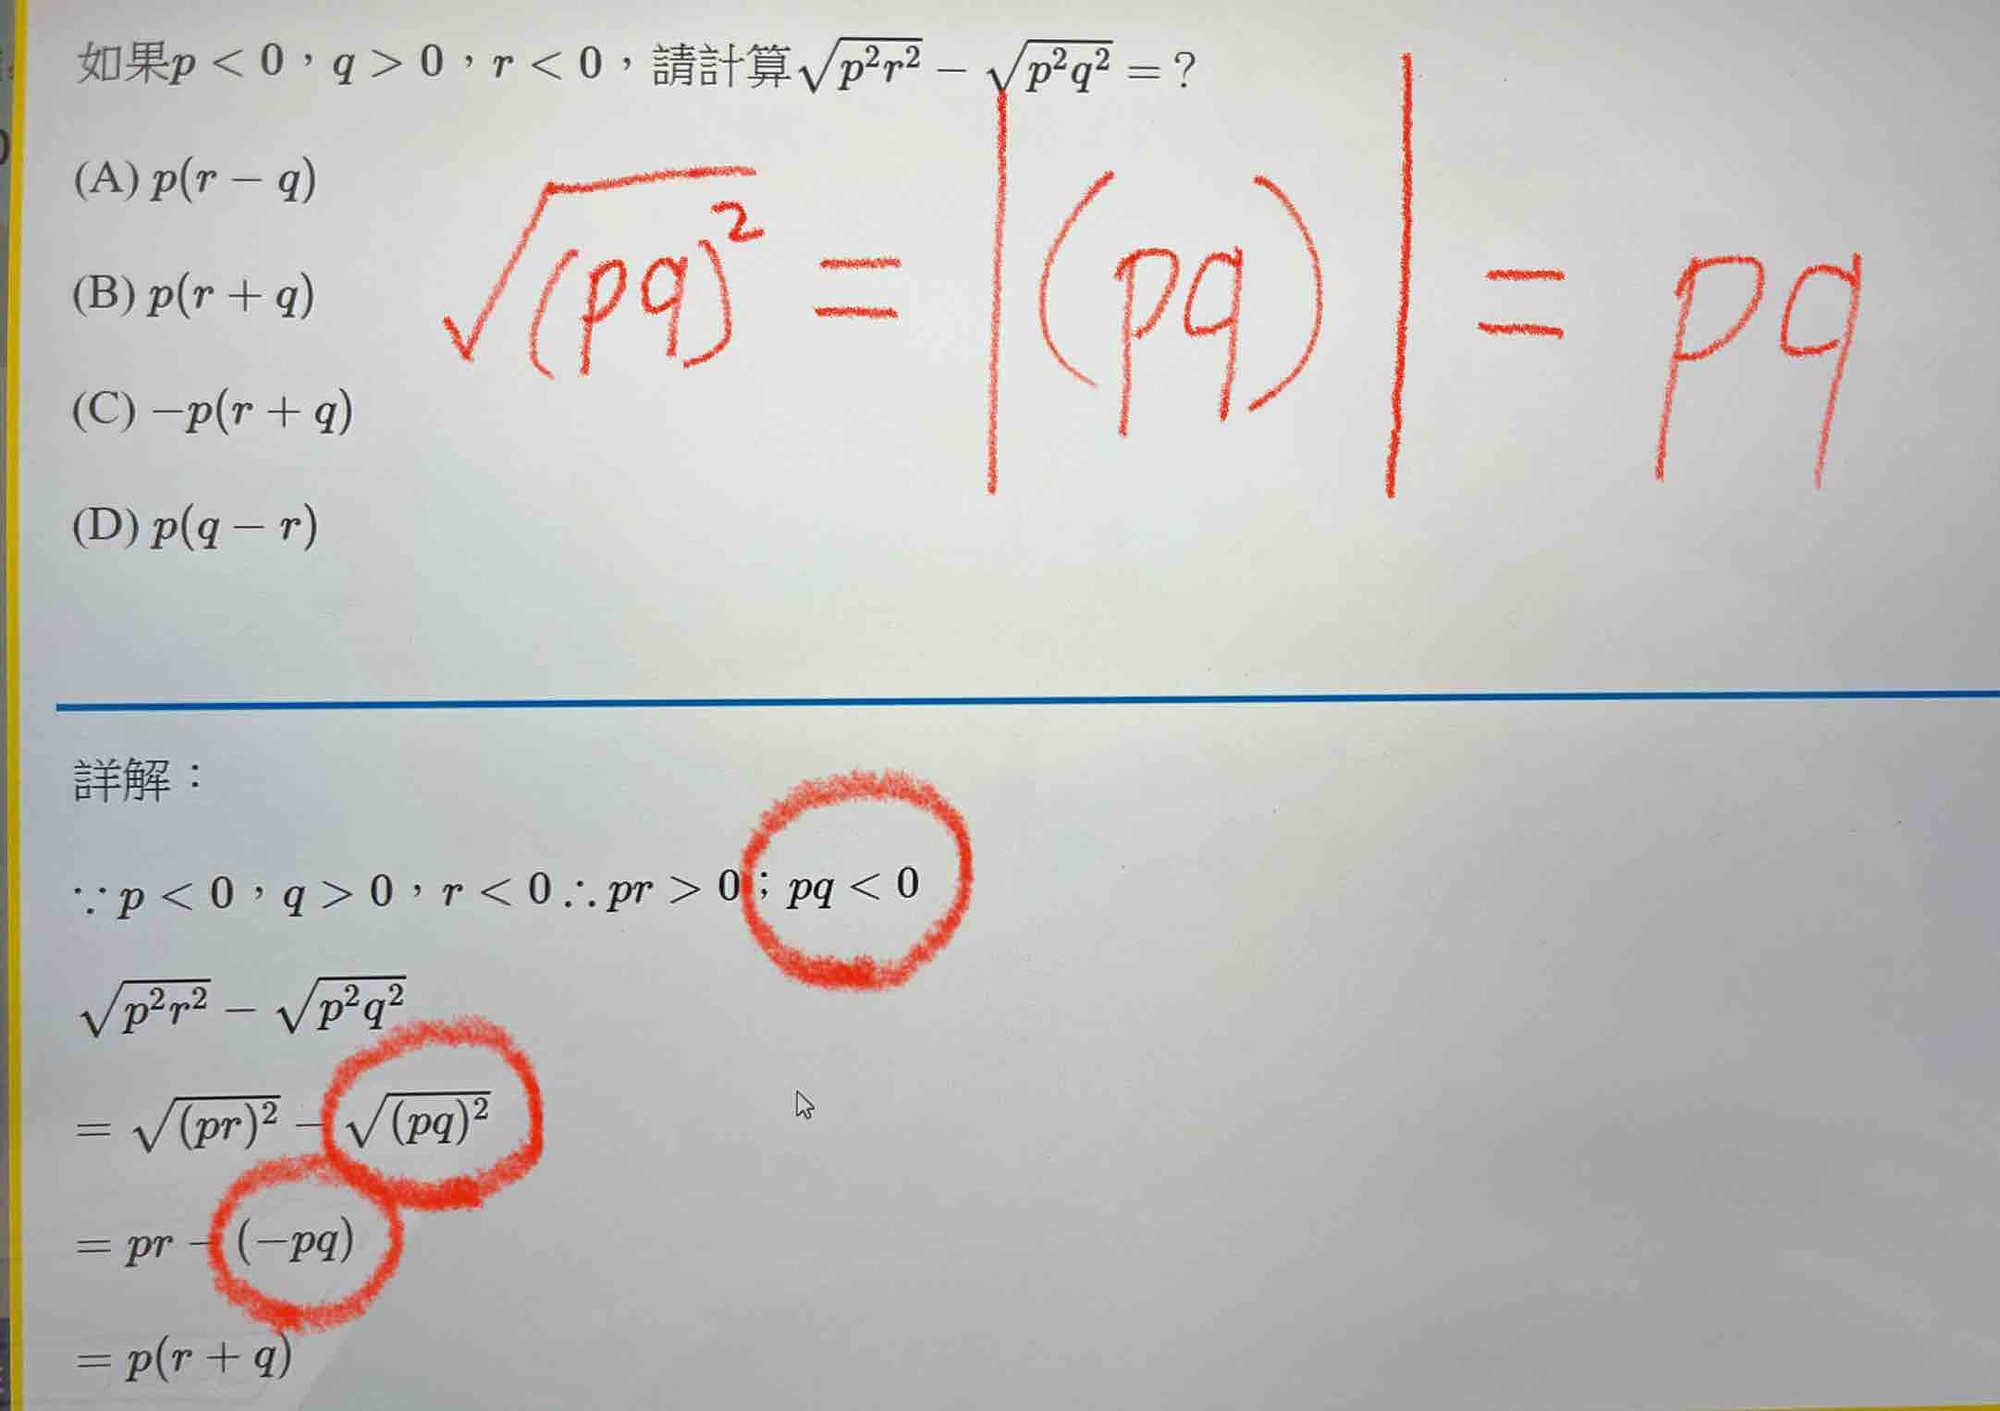 如果p < 0，q > 0，r < 0，請計算√p²r² − √p²q² = ?
(A) p(r − q)
√(pq)² = |(pq)| = pq
(B) p(r + q)
(C) −p(r + q)
(D) p(q − r)
詳解：
∵ p < 0，q > 0，r < 0 ∴ pr > 0；pq < 0
√p²r² − √p²q²
= √(pr)² − √(pq)²
= pr − (−pq)
= p(r + q)